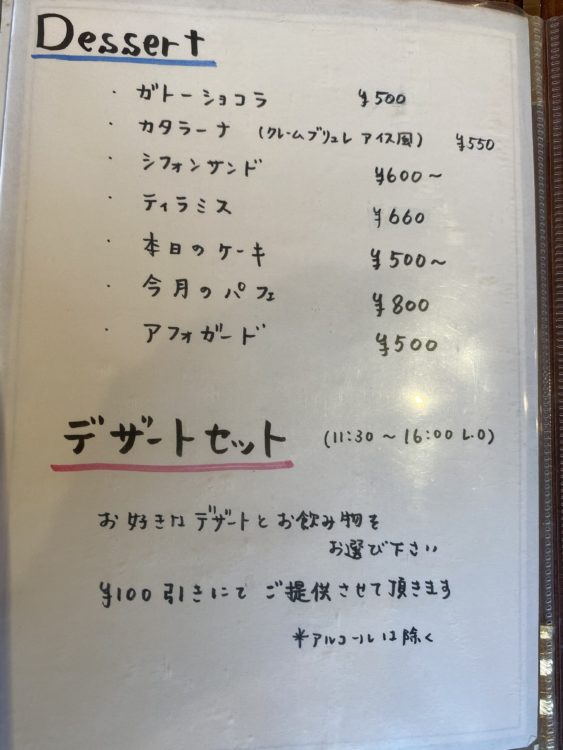 Dessert
・ガトーショコラ ¥500
・カタラーナ (クレームブリュレ アイス風) ¥550
・シフォンサンド ¥600～
・ティラミス ¥660
・本日のケーキ ¥500～
・今月のパフェ ¥800
・アフォガード ¥500
デザートセット (11:30～16:00 L.O)
お好きなデザートとお飲み物を
お選び下さい
¥100引きにてご提供させて頂きます
*アルコールは除く